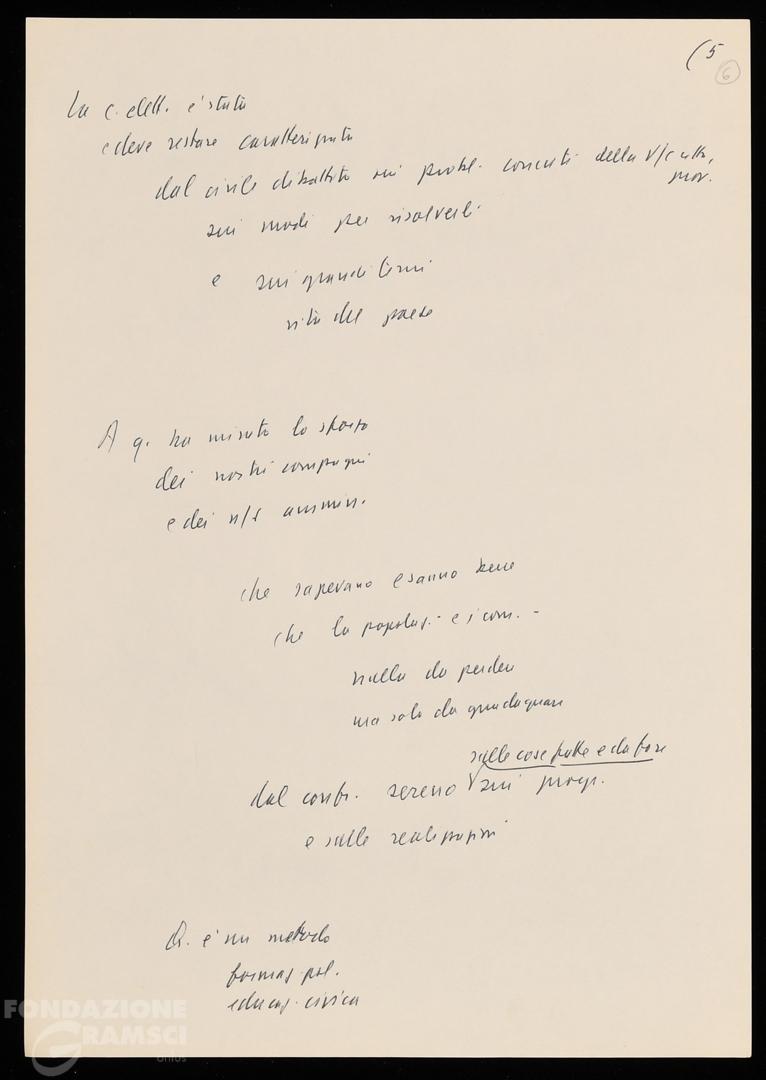 (5
6
La c. elett. è stata
e deve restare caratterizzata
dal civile dibattito sui probl. concreti della v/ città,
prov.
sui modi per risolverli
e sui grandi temi
vita del paese
A q. ha mirato lo sforzo
dei nostri compagni
e dei n/s ammin.
che sapevano e sanno bene
che la popolaz. e i com.
nulla da perdere
ma solo da guadagnare
sulle cose fatte e da fare
dal confr. sereno sui progr.
e sulle realizzazioni
Q. è un metodo
formaz. pol.
educaz. civica
FONDAZIONE
GRAMSCI
onlus